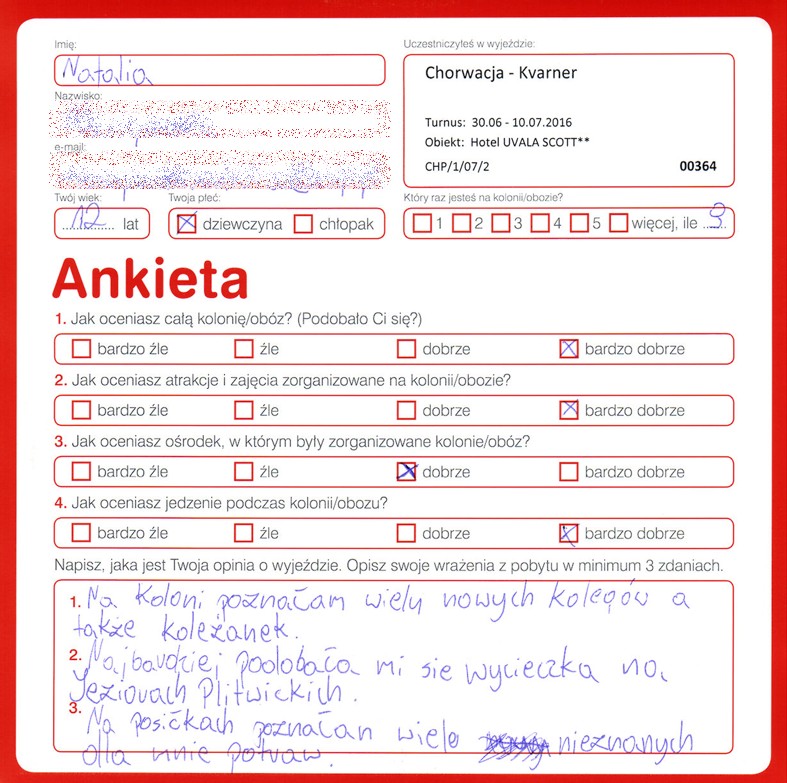 Imię:
Natalia
Nazwisko:
e-mail:
Twój wiek:
12 lat
Twoja płeć:
dziewczyna chłopak
Uczestniczyłeś w wyjeździe:
Chorwacja - Kvarner
Turnus: 30.06 - 10.07.2016
Obiekt: Hotel UVALA SCOTT**
CHP/1/07/2 00364
Który raz jesteś na kolonii/obozie?
1 2 3 4 5 więcej, ile 9
Ankieta
1. Jak oceniasz całą kolonię/obóz? (Podobało Ci się?)
bardzo źle źle dobrze bardzo dobrze
2. Jak oceniasz atrakcje i zajęcia zorganizowane na kolonii/obozie?
bardzo źle źle dobrze bardzo dobrze
3. Jak oceniasz ośrodek, w którym były zorganizowane kolonie/obóz?
bardzo źle źle dobrze bardzo dobrze
4. Jak oceniasz jedzenie podczas kolonii/obozu?
bardzo źle źle dobrze bardzo dobrze
Napisz, jaka jest Twoja opinia o wyjeździe. Opisz swoje wrażenia z pobytu w minimum 3 zdaniach.
1. Na koloni poznałam wielu nowych kolegów a
także koleżanek.
2. Najbardziej podobała mi sie wycieczka na
Jeziorach Plitwickich.
3. Na posiłkach poznałam wielo nieznanych
dla mnie potraw.